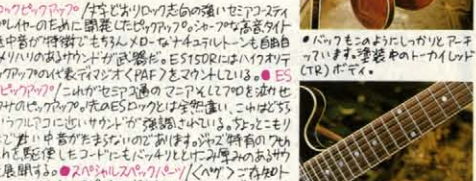 ロックピックアップ/文字どおりロック志向の強いセミアコースティ
プレイヤーのために開発したピックアップ。シャープな高音、タイト
な中音が特徴でもちろんメローなナチュラルトーンも自由自
メリハリのあるサウンドが武器だ。ES150Rにはハイクオリテ
ックアップの代表ディマジオ<PAF>をマウントしている。●ES
ピックアップ/これがセミアコ通のマニア、そしてプロを泣かせ
みのピックアップ。先のESロックとは全然違い、これはどち
うフルアコに近いサウンドが強調されている。ちょっとこもり
で甘い中音がたまらないのであります。ジャズ特有のクセの
れを駆使したコードにもバッチリととけこみ厚みのあるサウ
展開する。●スペシャルスペックパーツ/<ペグ>ご存知ト
●バックもこのようにしっかりとアーチ
っています。塗装中のトーカイレッド
(TR)ボディ。